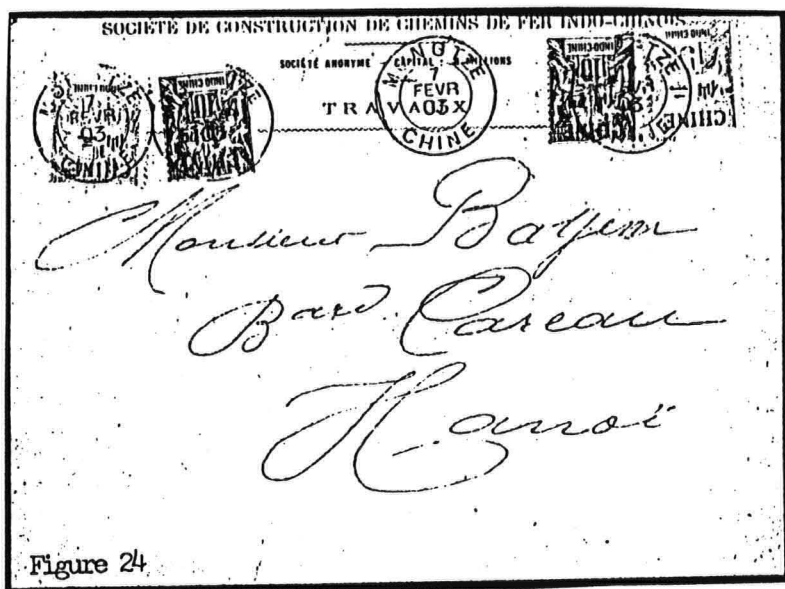 SOCIÉTÉ DE CONSTRUCTION DE CHEMINS DE FER INDO-CHINOIS
SOCIÉTÉ ANONYME - CAPITAL : MILLIONS
TRAVAUX
7
FEVR
03
CHINE
7
FEVR
03
CHINE
INDO-CHINE
10
INDO-CHINE
10
INDO-CHINE
15
CHINE
Monsieur Bayem
Bard. Careau
Hanoï
Figure 24